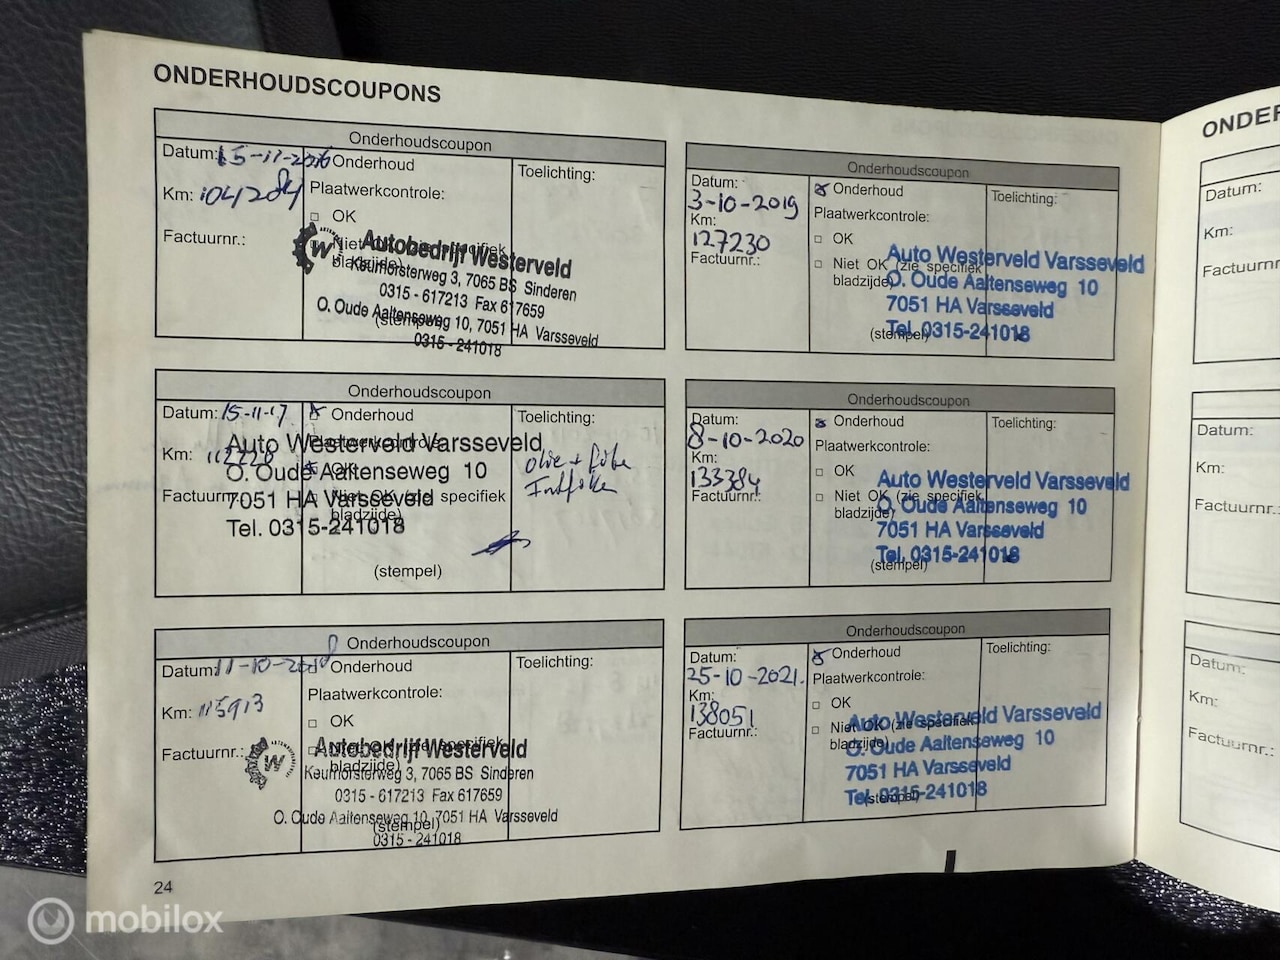 ONDERHOUDSCOUPONS
Onderhoudscoupon
Datum: 15-11-2016
Onderhoud
Toelichting:
Km: 104284
Plaatwerkcontrole:
OK
Factuurnr.:
Niet OK (zie specifiek
bladzijde)
Autobedrijf Westerveld
Keurhorsterweg 3, 7065 BS Sinderen
0315 - 617213 Fax 617659
O. Oude Aaltenseweg 10, 7051 HA Varsseveld
(stempel)
0315 - 241018
Onderhoudscoupon
Datum: 15-11-17
Onderhoud
Toelichting:
Plaatwerkcontrole:
Auto Westerveld Varsseveld
Km:
OK
Olie +
O. Oude Aaltenseweg 10
Factuurnr.:
Niet OK (zie specifiek
bladzijde)
7051 HA Varsseveld
Tel. 0315-241018
(stempel)
Onderhoudscoupon
Datum: 11-10-2018
Onderhoud
Toelichting:
Plaatwerkcontrole:
Km: 115913
OK
Factuurnr.:
Niet OK (zie specifiek
bladzijde)
Autobedrijf Westerveld
Keurhorsterweg 3, 7065 BS Sinderen
0315 - 617213 Fax 617659
O. Oude Aaltenseweg 10, 7051 HA Varsseveld
(stempel)
0315 - 241018
24
Onderhoudscoupon
Datum:
3-10-2019
Onderhoud
Toelichting:
Km:
127230
Plaatwerkcontrole:
OK
Factuurnr.:
Niet OK (zie specifiek
bladzijde)
Auto Westerveld Varsseveld
O. Oude Aaltenseweg 10
7051 HA Varsseveld
Tel. 0315-241018
(stempel)
Onderhoudscoupon
Datum:
8-10-2020
Onderhoud
Toelichting:
Km:
133384
Plaatwerkcontrole:
OK
Factuurnr.:
Niet OK (zie specifiek
bladzijde)
Auto Westerveld Varsseveld
O. Oude Aaltenseweg 10
7051 HA Varsseveld
Tel. 0315-241018
(stempel)
Onderhoudscoupon
Datum:
25-10-2021.
Onderhoud
Toelichting:
Km:
138051
Plaatwerkcontrole:
OK
Factuurnr.:
Niet OK (zie specifiek
bladzijde)
Auto Westerveld Varsseveld
O. Oude Aaltenseweg 10
7051 HA Varsseveld
Tel. 0315-241018
(stempel)
ONDER
Datum:
Km:
Factuurnr
Datum:
Km:
Factuurnr.:
Datum:
Km:
Factuurnr.:
mobilox